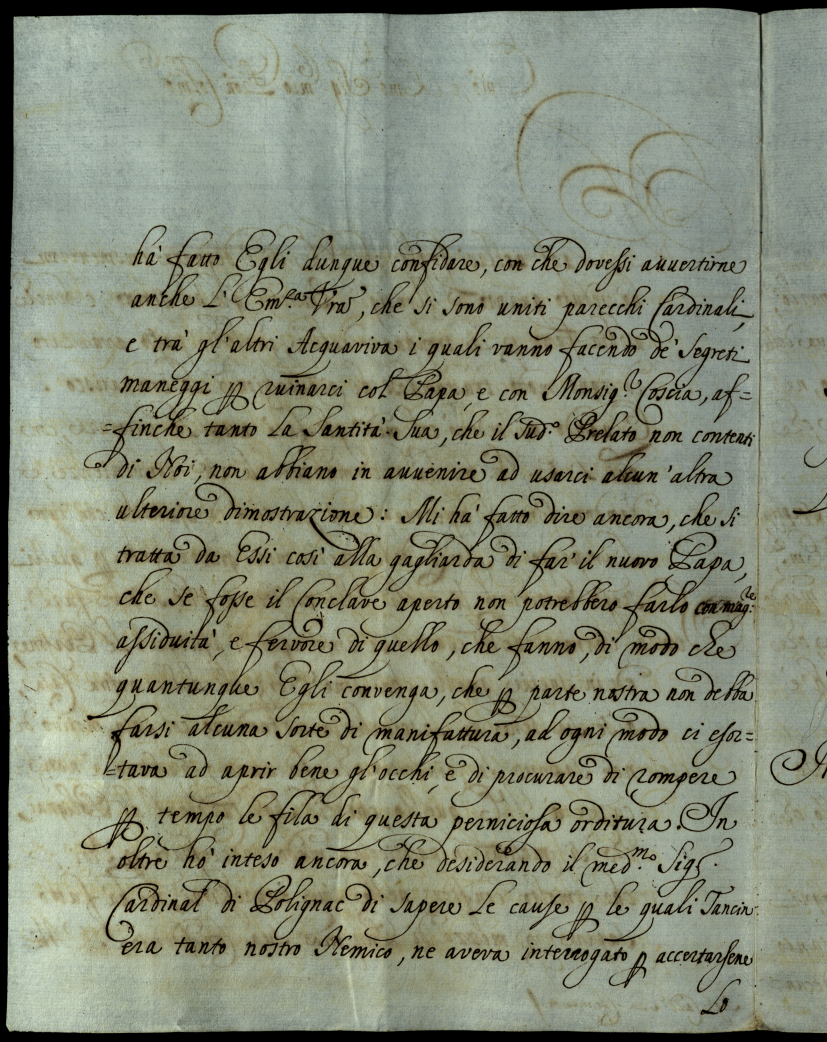 hà fatto Egli dunque confidare, con che dovessi avvertirne
anche L'Em.ª Vrã, che si sono uniti parecchi Cardinali,
e trà gl'altri Acquaviva i quali vanno facendo de' Segreti
maneggi ꝑ ruinarci col Papa, e con Monsig.r Coscia, af=
=finche tanto La Santità Sua, che il Sud.º Prelato non contenti
di Noi, non abbiano in avvenire ad usarci alcun'altra
ulteriore dimostrazione: Mi hà fatto dire ancora, che si
tratta da Essi così alla gagliarda di far' il nuovo Papa,
che se fosse il Conclave aperto non potrebbero farlo con mag.re
assiduità, e fervore di quello, che fanno, di modo che
quantunque Egli convenga, che ꝑ parte nostra non debba
farsi alcuna sorte di manifattura, ad ogni modo ci esor=
=tava ad aprir bene gl'occhi, e di procurare di rompere
ꝑ tempo le fila di questa perniciosa orditura. In
oltre hò inteso ancora, che desiderando il med.mo Sig.r
Cardinal di Polignac di sapere Le cause ꝑ le quali Tancin
era tanto nostro Nemico, ne aveva interrogato ꝑ accertarsene
Lo